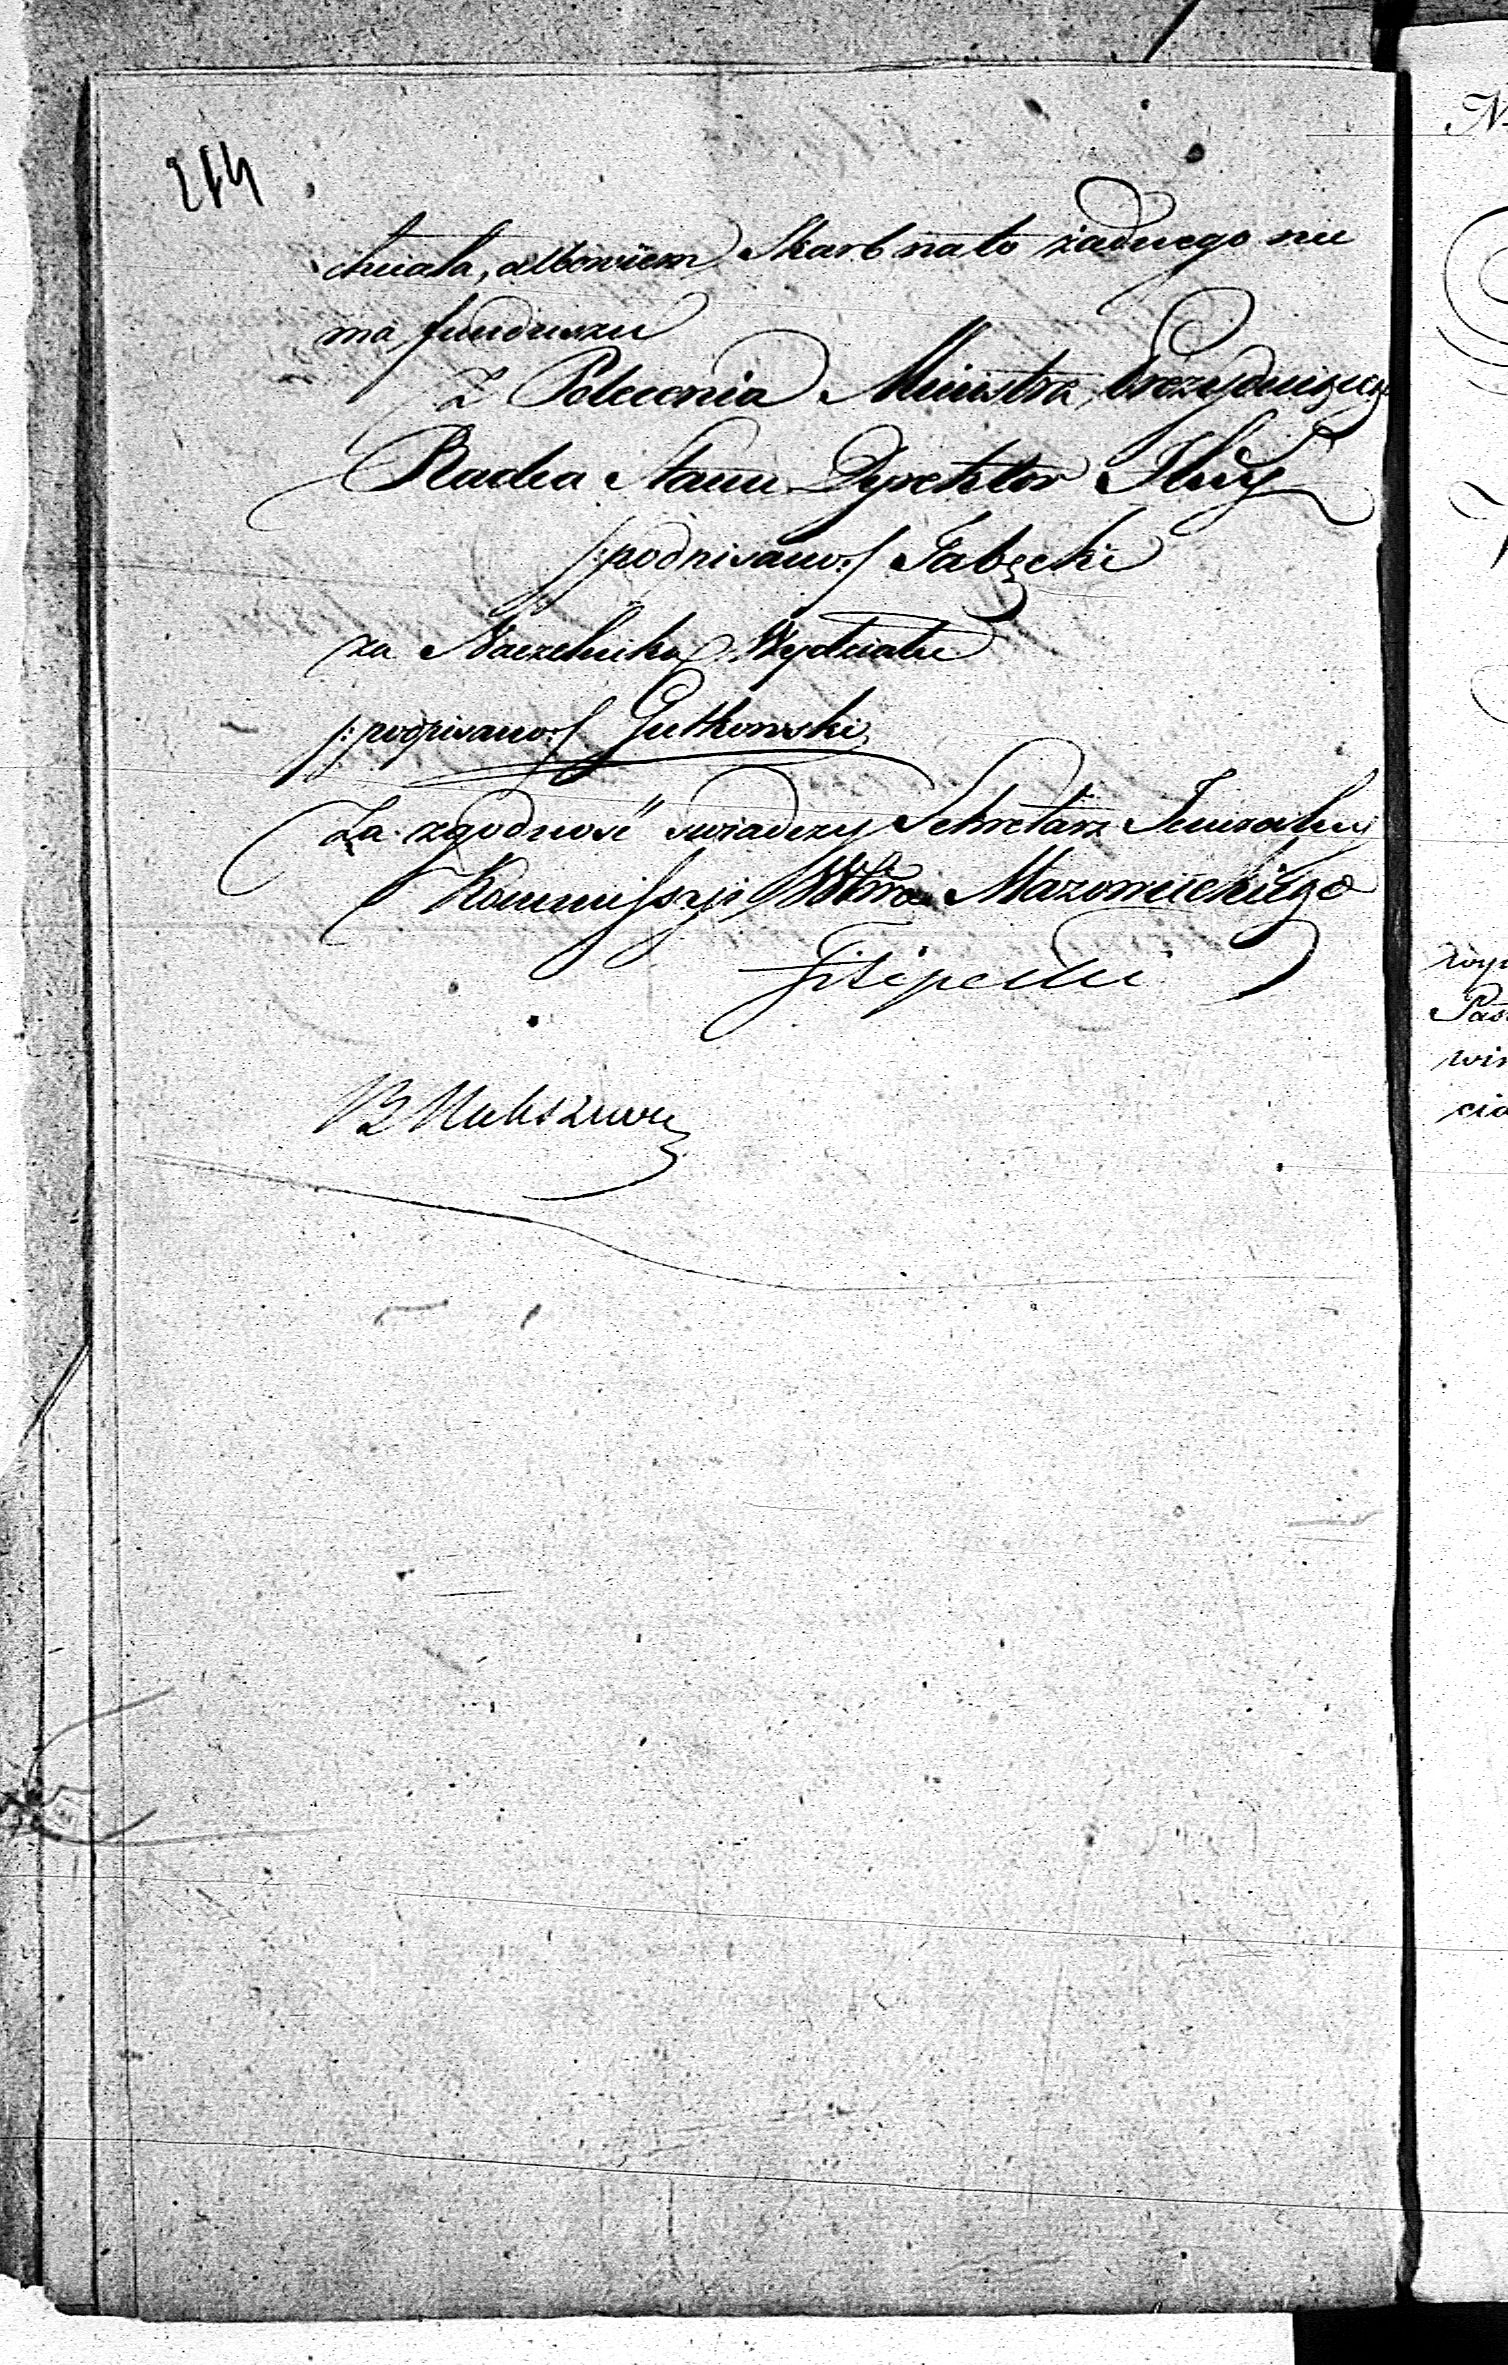 214
chciała, albowiem Skarb na to żadnego nie
ma funduszu
Z Polecenia Ministra Prezydującego
Radca Stanu Dyrektor Jlny
/:podpisano:/ Łabęcki
za Naczelnika Wydziału
/:podpisano:/ Gutkowski
Za zgodność swiadczy Sekretarz Jeneralny
Kommissyi Wdztwa Mazowieckiego
Filipecki
N